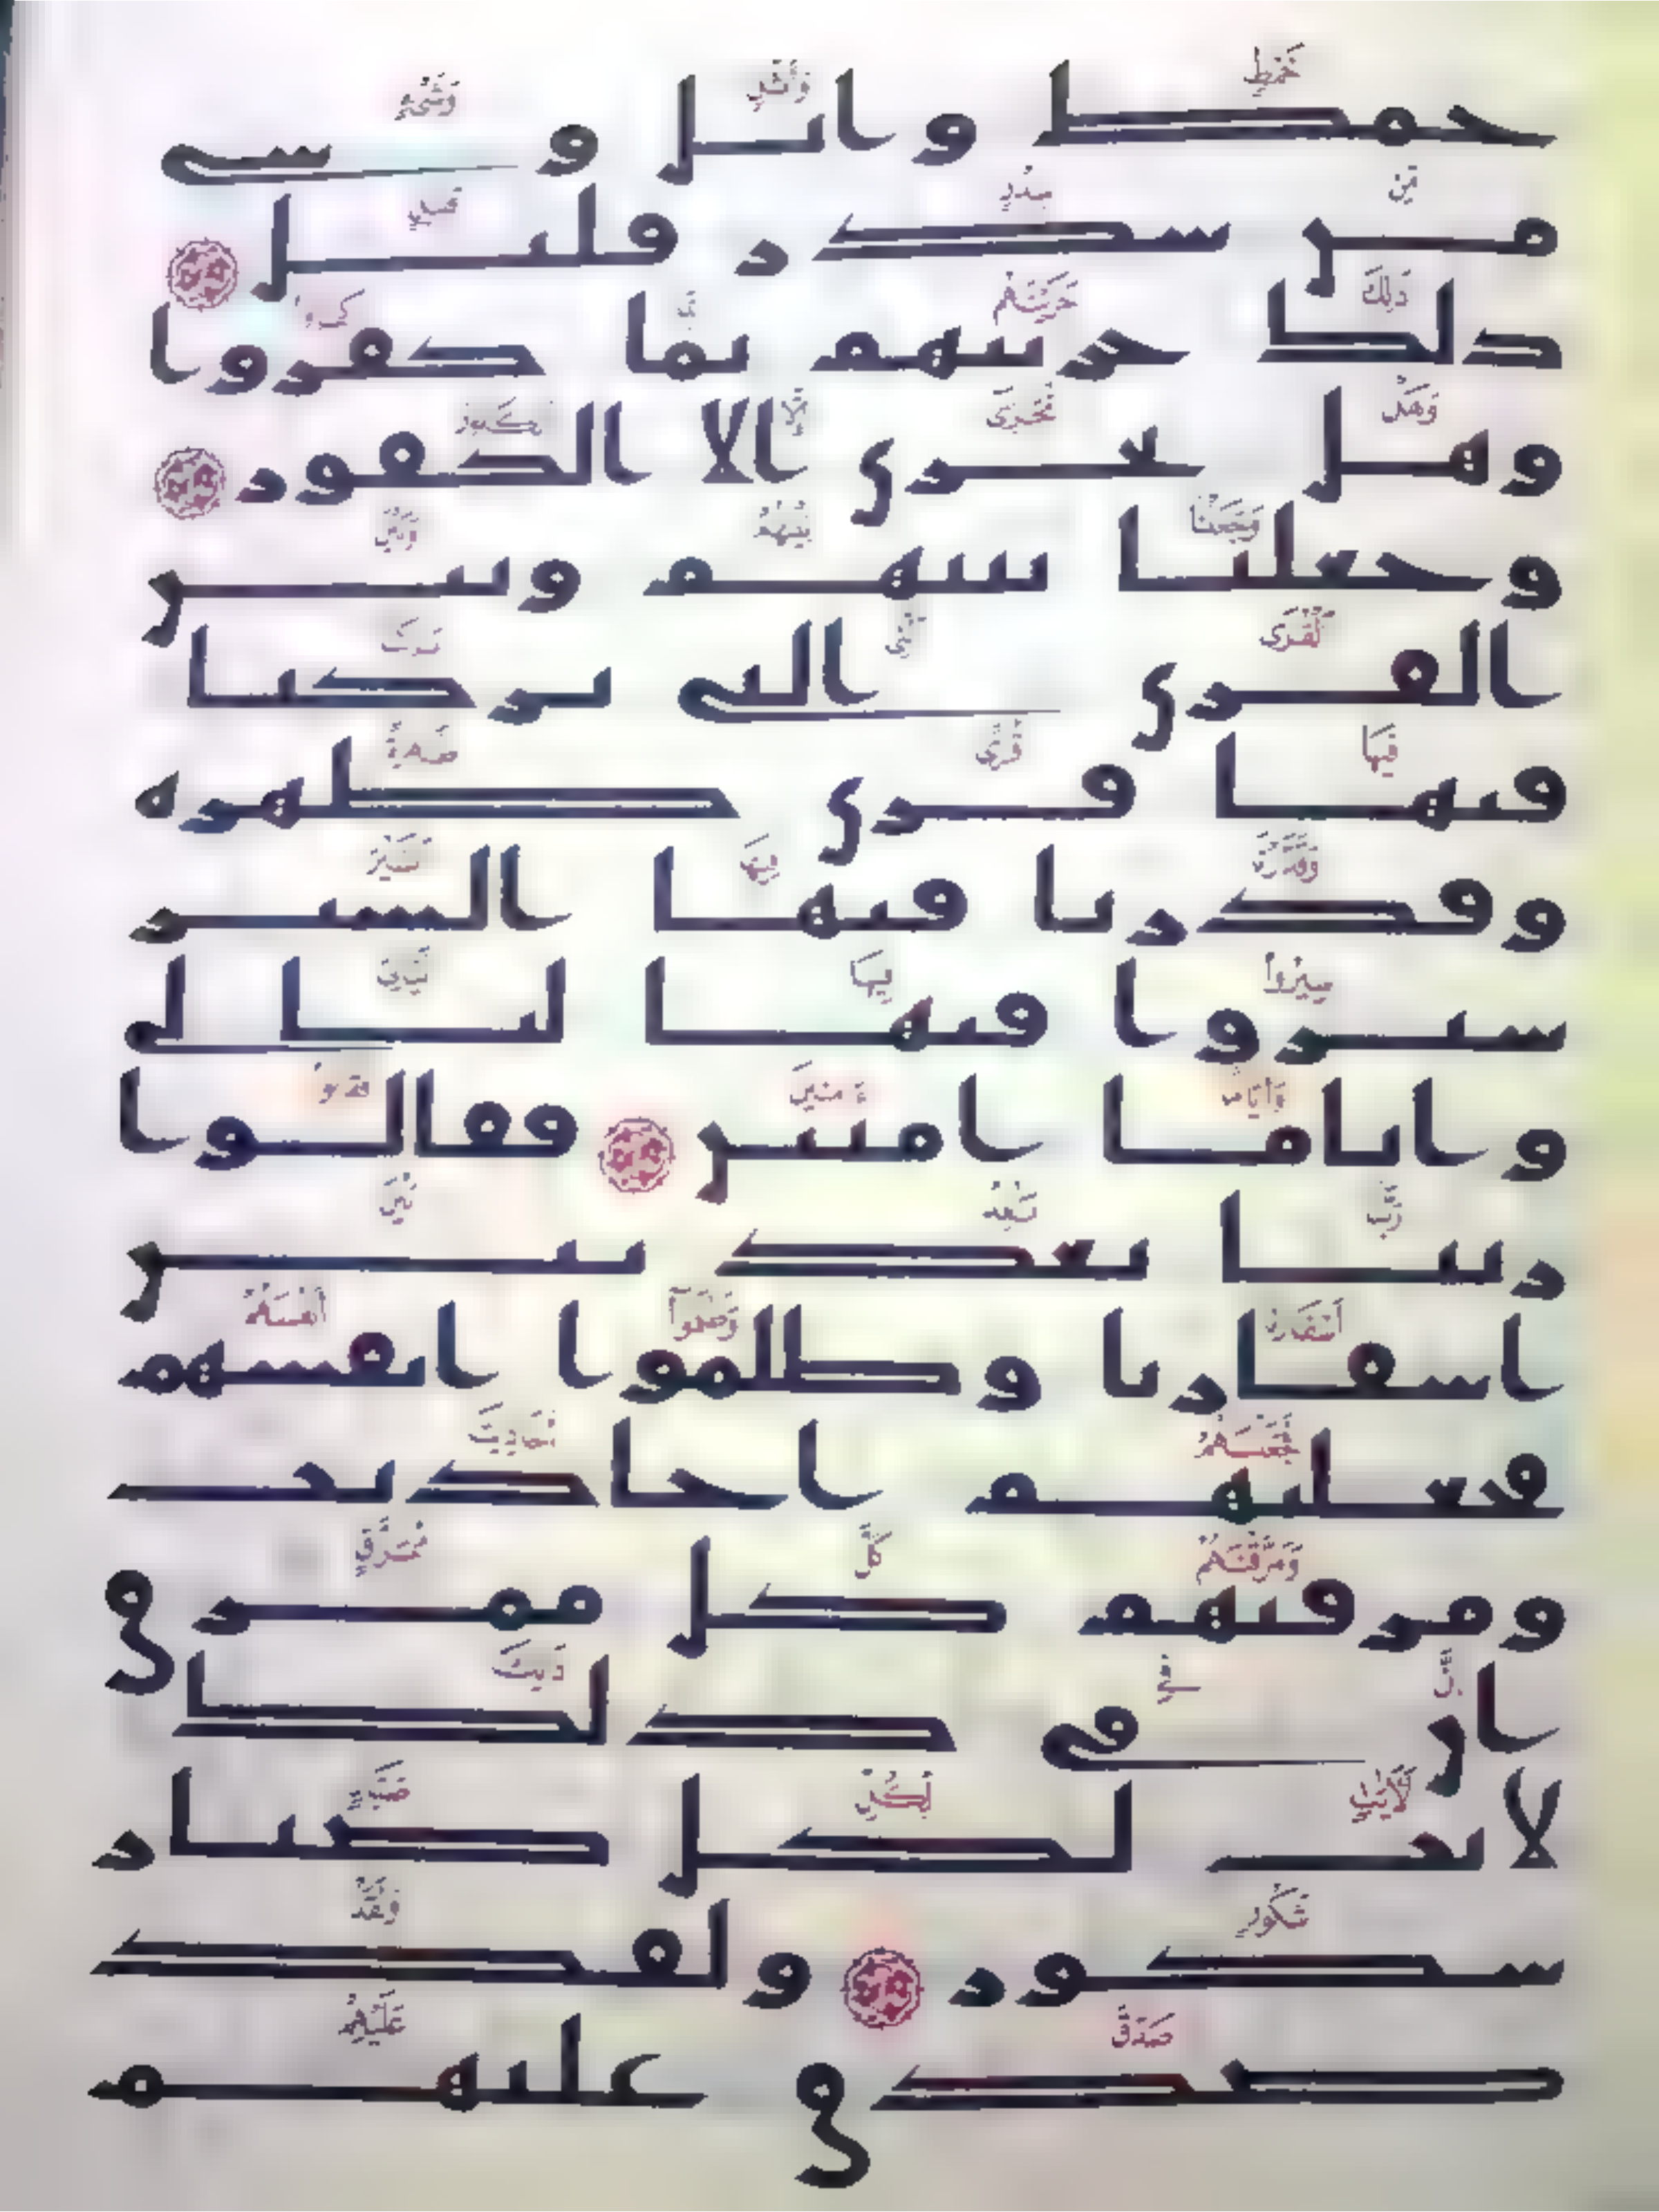 خمط واثل وشى
من سدر قليل
ذلك جزينهم بما كفروا
وهل نجزى الا الكفور
وجعلنا بينهم وبين
القرى التى بركنا
فيها قرى ظهره
وقدرنا فيها السير
سيروا فيها ليالى
واياما امنين فقالوا
ربنا بعد بين
اسفارنا وظلموا انفسهم
فجعلنهم احاديث
ومزقنهم كل ممزق
ان فى ذلك
لايت لكل صبار
شكور ولقد
صدق عليهم